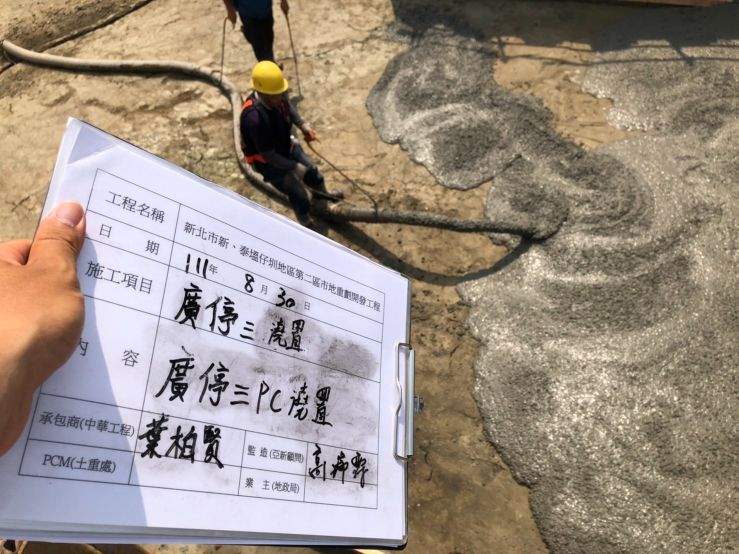 工程名稱 新北市新、泰塭仔圳地區第二區市地重劃開發工程
日期 111年 8月 30日
施工項目 廣停三 澆置
內容 廣停三PC澆置
承包商(中華工程) 葉柏賢 監造(亞新顧問)
PCM(土重處) 業主(地政局)